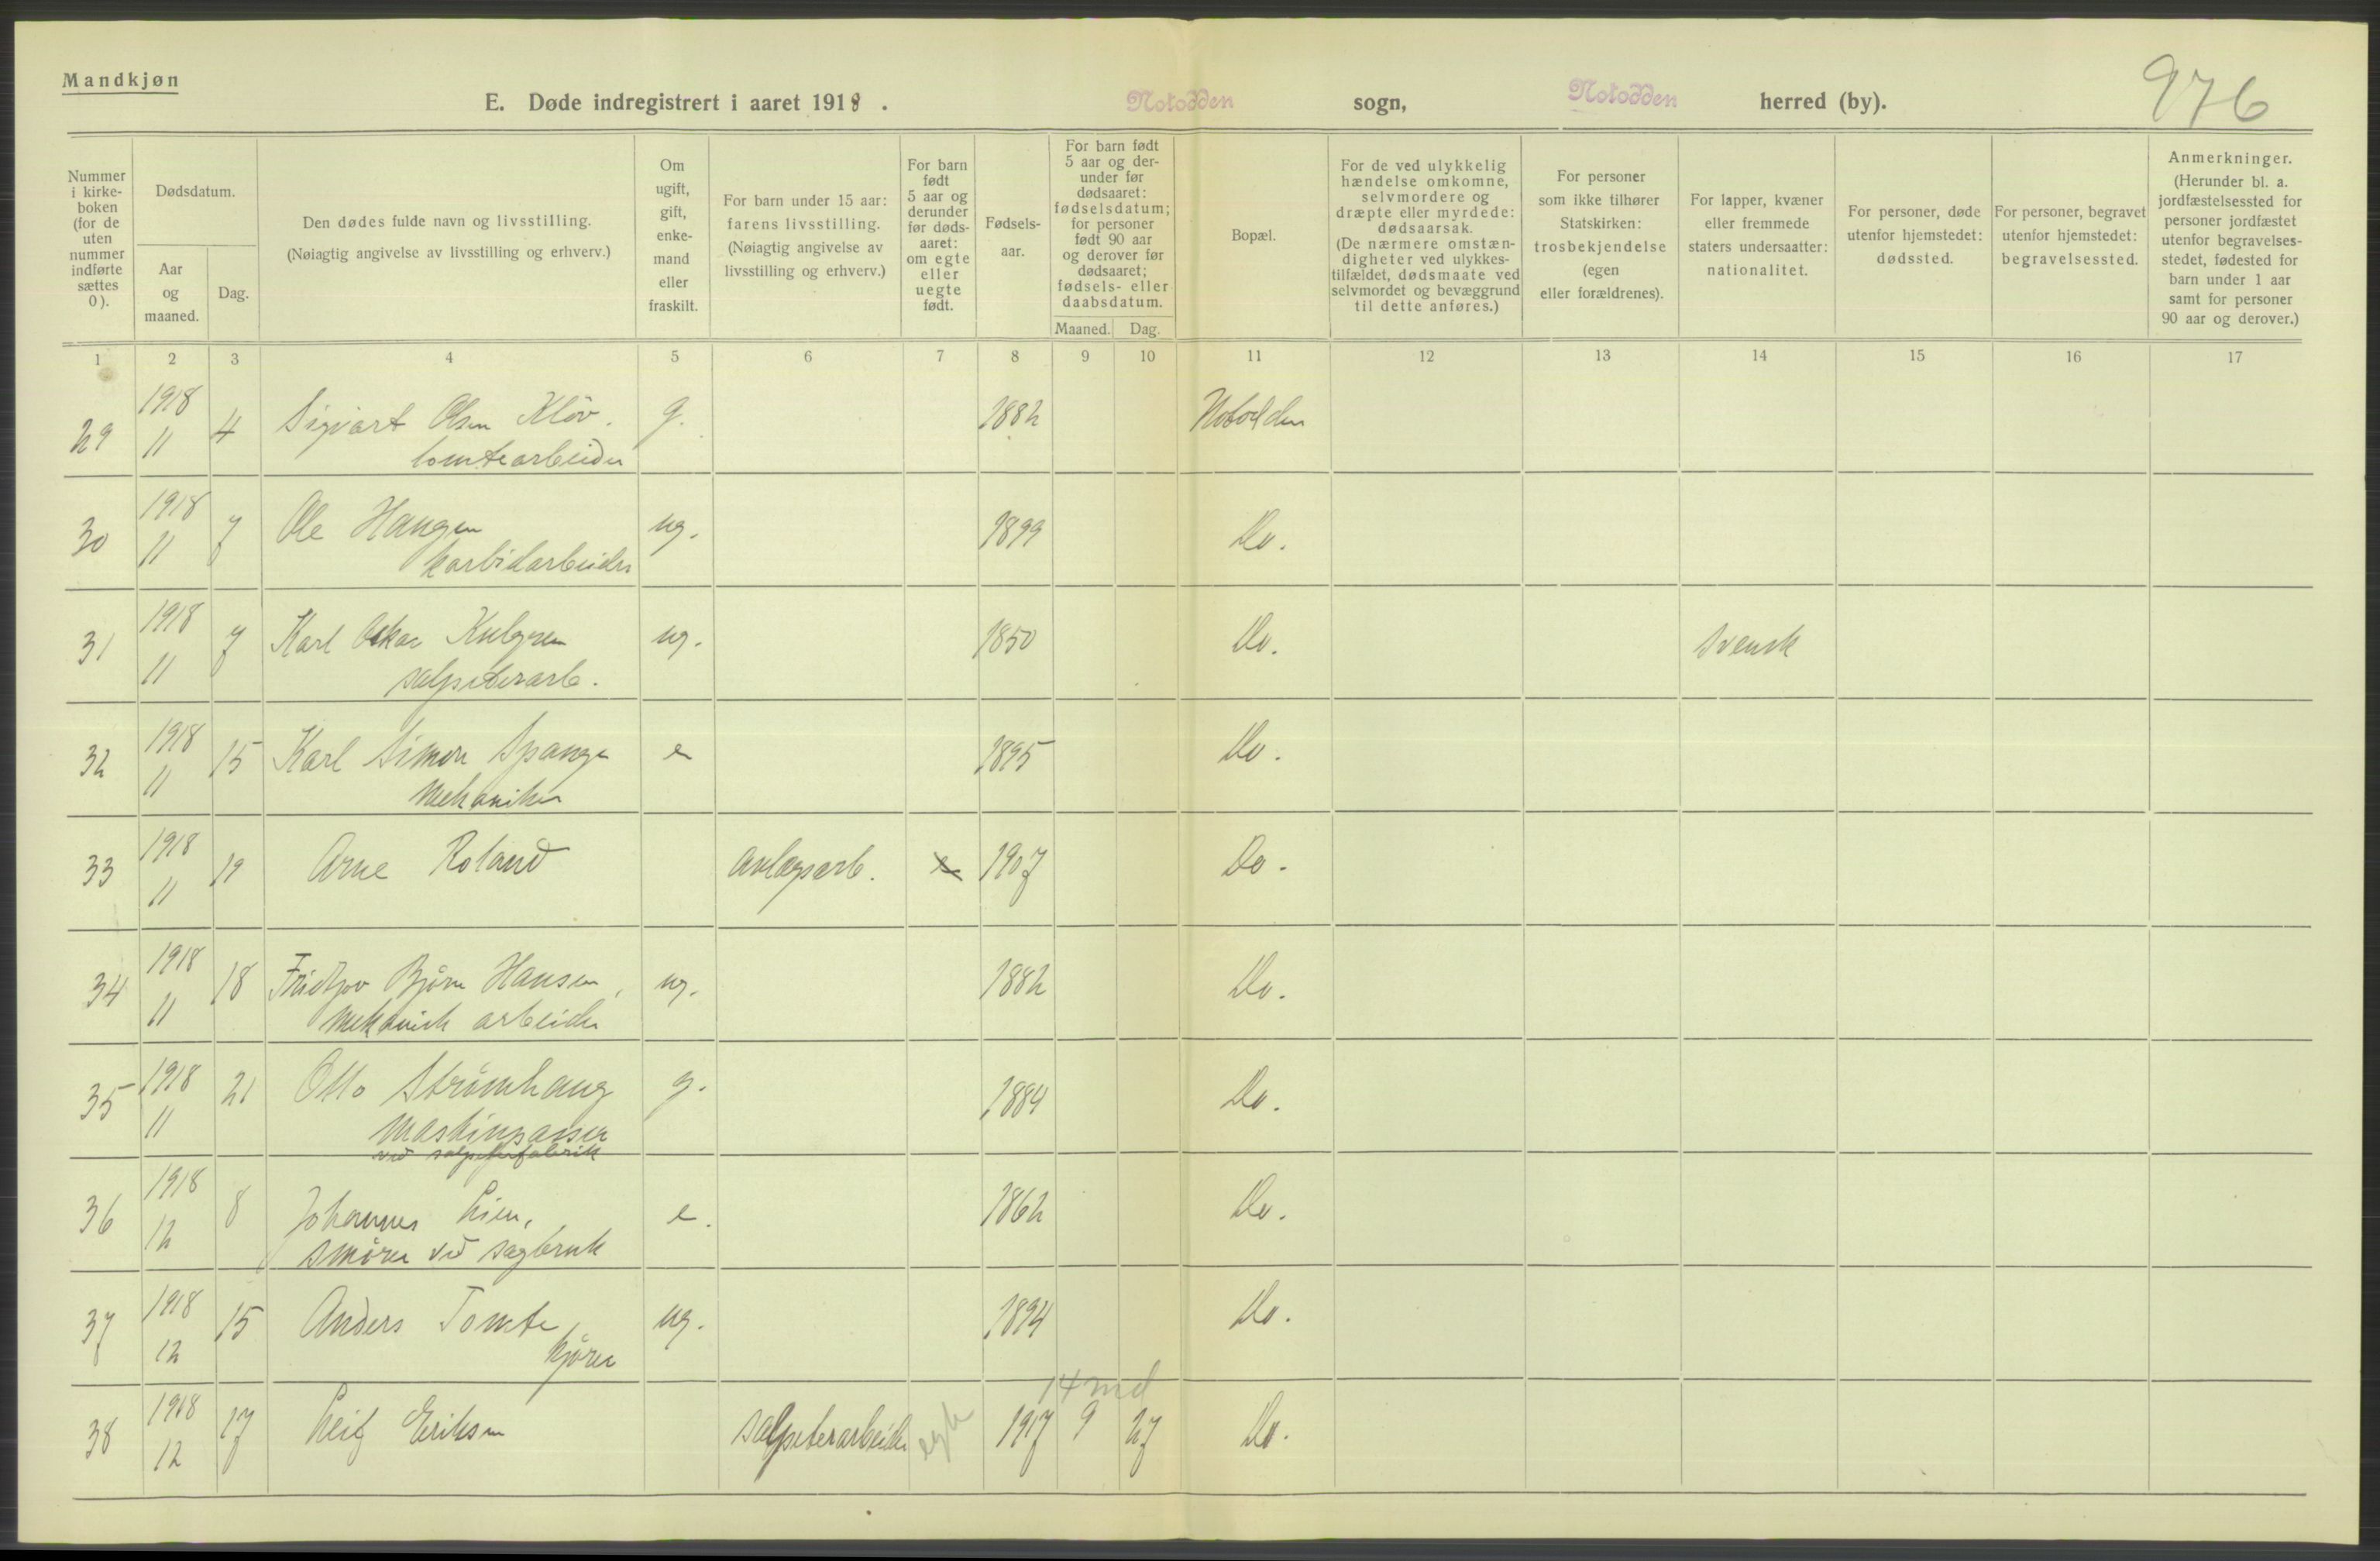 Mandkjøn
E. Døde indregistrert i aaret 1918.
Notodden sogn,
Notodden herred (by).
976
Nummer i kirke- boken (for de uten nummer indførte sættes 0).
Dødsdatum.
Aar og maaned.
Dag.
Den dødes fulde navn og livsstilling.
(Nøiagtig angivelse av livsstilling og erhverv.)
Om ugift, gift, enke- mand eller fraskilt.
For barn under 15 aar: farens livsstilling. (Nøiagtig angivelse av livsstilling og erhverv.)
For barn født 5 aar og derunder før døds- aaret: om egte eller uegte født.
Fødsels- aar.
For barn født 5 aar og der- under før dødsaaret: fødselsdatum; for personer født 90 aar og derover før dødsaaret; fødsels- eller daabsdatum.
Maaned.
Dag.
Bopæl.
For de ved ulykkelig hændelse omkomne, selvmordere og dræpte eller myrdede: dødsaarsak. (De nærmere omstæn- digheter ved ulykkes- tilfældet, dødsmaate ved selvmordet og bevæggrund til dette anføres.)
For personer som ikke tilhører Statskirken: trosbekjendelse (egen eller forældrenes).
For lapper, kvæner eller fremmede staters undersaatter: nationalitet.
For personer, døde utenfor hjemstedet: dødssted.
For personer, begravet utenfor hjemstedet: begravelsessted.
Anmerkninger. (Herunder bl. a. jordfæstelsessted for personer jordfæstet utenfor begravelses- stedet, fødested for barn under 1 aar samt for personer 90 aar og derover.)
1 2 3 4 5 6 7 8 9 10 11 12 13 14 15 16 17
29 1918 11 4 Sigvart Olsen Kløv. g. 1882 Notodden
tomtearbeider
30 1918 11 7 Ole Haugen ug. 1899 Do.
karbidarbeider
31 1918 11 7 Karl Oskar ug. 1850 Do. svensk
salpeterarb.
32 1918 11 15 Karl Simon Spange e 1895 Do.
mekaniker
33 1918 11 19 Arne Roland anlægsarb. e 1907 Do.
34 1918 11 18 Fridtjov Bjørn Hansen, ug. 1882 Do.
mekanisk arbeider
35 1918 11 21 Otto Strømhaug g. 1884 Do.
maskinpasser
ved salpeterfabrik
36 1918 12 8 Johannes Lien, e. 1862 Do.
smører ved sagbruk
37 1918 12 15 Anders Tomte, ug. 1894 Do.
kjører
14 md
38 1918 12 17 Leif Eriksen salpeterarbeider egte 1917 9 27 Do.